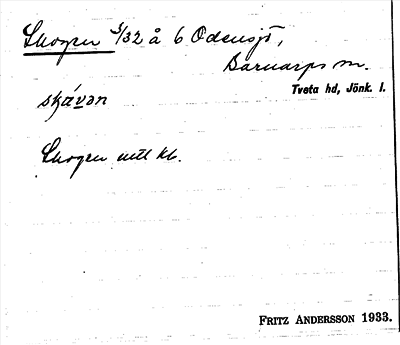 Skogen 5/32 å 6 Odensjö,
Barnarps sn.
Tveta hd, Jönk. l.
Skogen enl kb.
FRITZ ANDERSSON 1933.